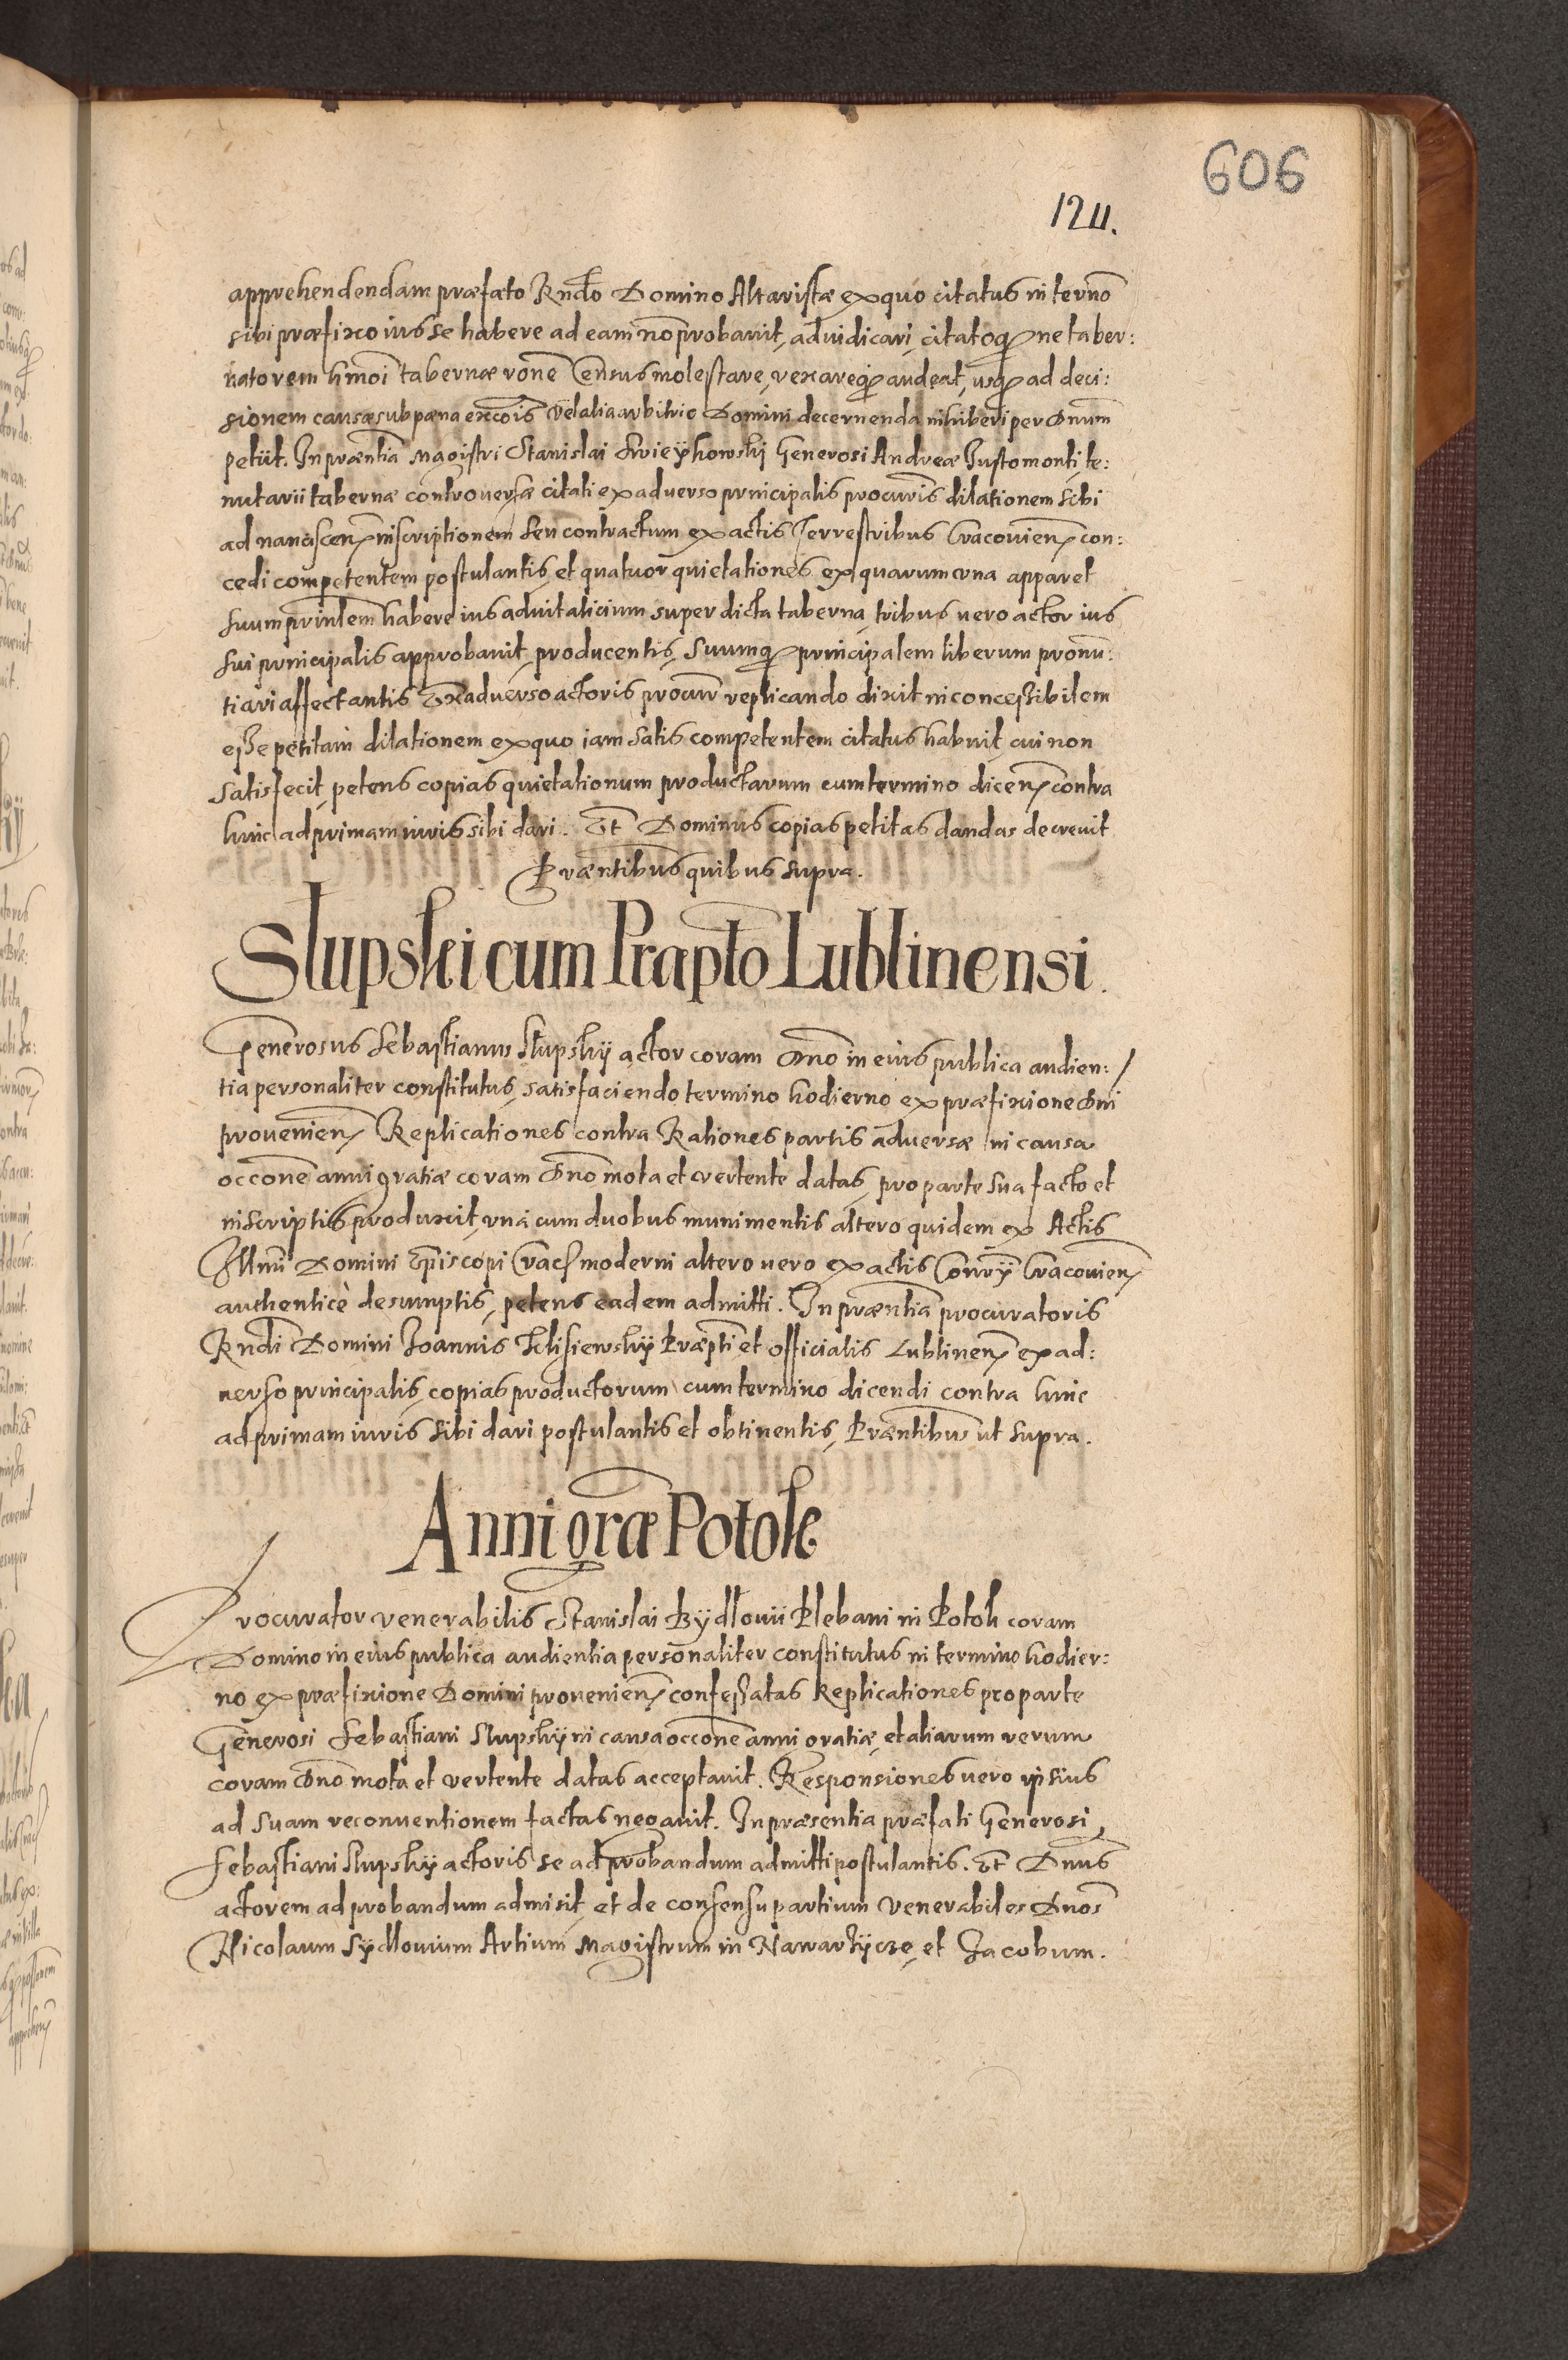 606
1211.
apprehendendam præfato Rndo Domino Altaristæ ex quo citatus in termo
sibi præfixo ius se habere ad eam no probauit, adiudicari, citatoq ne taber:
natorem hmoi tabernæ rone Census molestare, vexareq audeat, usq ad deci:
sionem causæ sub pæna excois vel alia arbitrio Domini decernenda inhiberi per Dnum
petiit. In præntia Magistri Stanislai Generosi Andreæ Justomonti, te:
nutarii tabernæ controuersæ citati ex aduerso principalis procuris dilationem sibi
ad nanciscen inscriptionem seu contractum ex actis Terrestribus Cracouien con:
cedi competentem postulantis, et quatuor quietationes ex quarum una apparet
suum prinlem habere ius aduitalicium super dicta taberna, tribus uero actor ius
sui principalis approbauit, producentis, Suumq principalem liberum pronu:
tiari affectantis Ex aduerso actoris procur replicando dixit inconcessibilem
esse petitam dilationem ex quo iam satis competentem citatus habuit, cui non
satisfecit, petens copias quietationum productarum cum termino dicen contra
hinc ad primam iuris sibi dari. Et Dominus copias petitas dandas decreuit
Præntibus quibus supra.
Slupski cum Præpto Lublinensi.
Generosus Sebastianus Slupsky actor coram Dno in eius publica audien:
tia personaliter constitutus, satisfaciendo termino hodierno ex præfixione Dni
prouenien Replicationes contra Rationes partis aduersæ in causa
occone anni gratiæ coram Dno mota et vertente datas, pro parte sua facto et
in scriptis produxit, una cum duobus munimentis altero quidem ex Actis
Illmi Domini Episcopi Crac moderni altero uero ex actis Concry Cracouien
authentice desumptis, petens eadem admitti. In præntia procuratoris
Rndi Domini Joannis Præpti et officialis Lublinen ex ad:
uerso principalis, copias productorum cum termino dicendi contra hinc
ad primam iuris sibi dari postulantis et obtinentis, Præntibus ut supra.
Anni græ Potok
Procurator venerabilis Stanislai Bydlouii Plebani in Potok coram
Domino in eius publica audientia personaliter constitutus in termino hodier:
no ex præfixione Domini prouenien confessatas Replicationes pro parte
Generosi Sebastiani Slupsky in causa occone anni gratiæ, et aliarum rerum
coram Dno mota et vertente datas acceptauit. Responsiones uero ipsius
ad suam reconuentionem factas negauit. In præsentia præfati Generosi
Sebastiani Slupsky actoris se ad probandum admitti postulantis. Et Dnus
actorem ad probandum admisit, et de consensu partium Venerabiles Dnos
Nicolaum Sydlouium Artium Magistrum in et Jacobum.